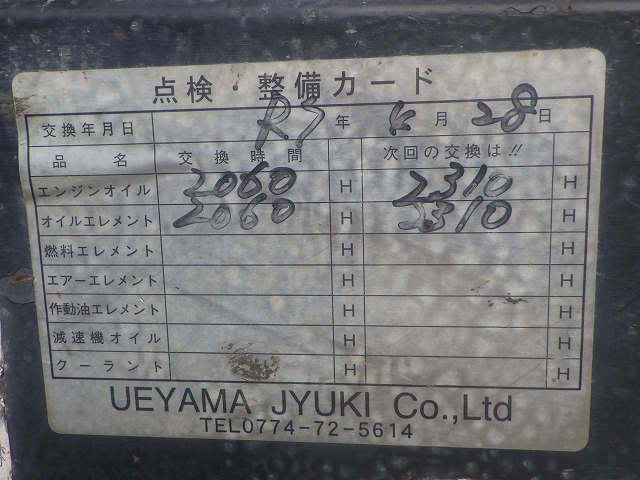 点検・整備カード
交換年月日 R3年 月 28日
品名 交換時間 次回の交換は!!
エンジンオイル 2060 H 2310 H
オイルエレメント 2060 H 2310 H
燃料エレメント H H
エアーエレメント H H
作動油エレメント H H
減速機オイル H H
クーラント H H
UEYAMA JYUKI Co.,Ltd
TEL0774-72-5614